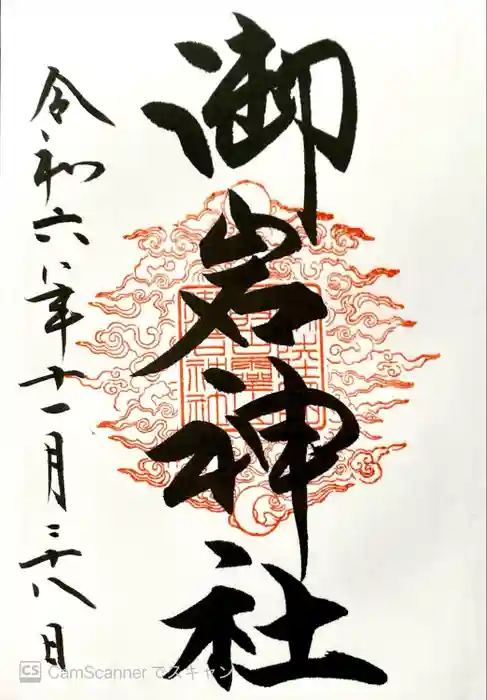 御岩神社
令和六年十一月二十八日
CS CamScanner でスキャン